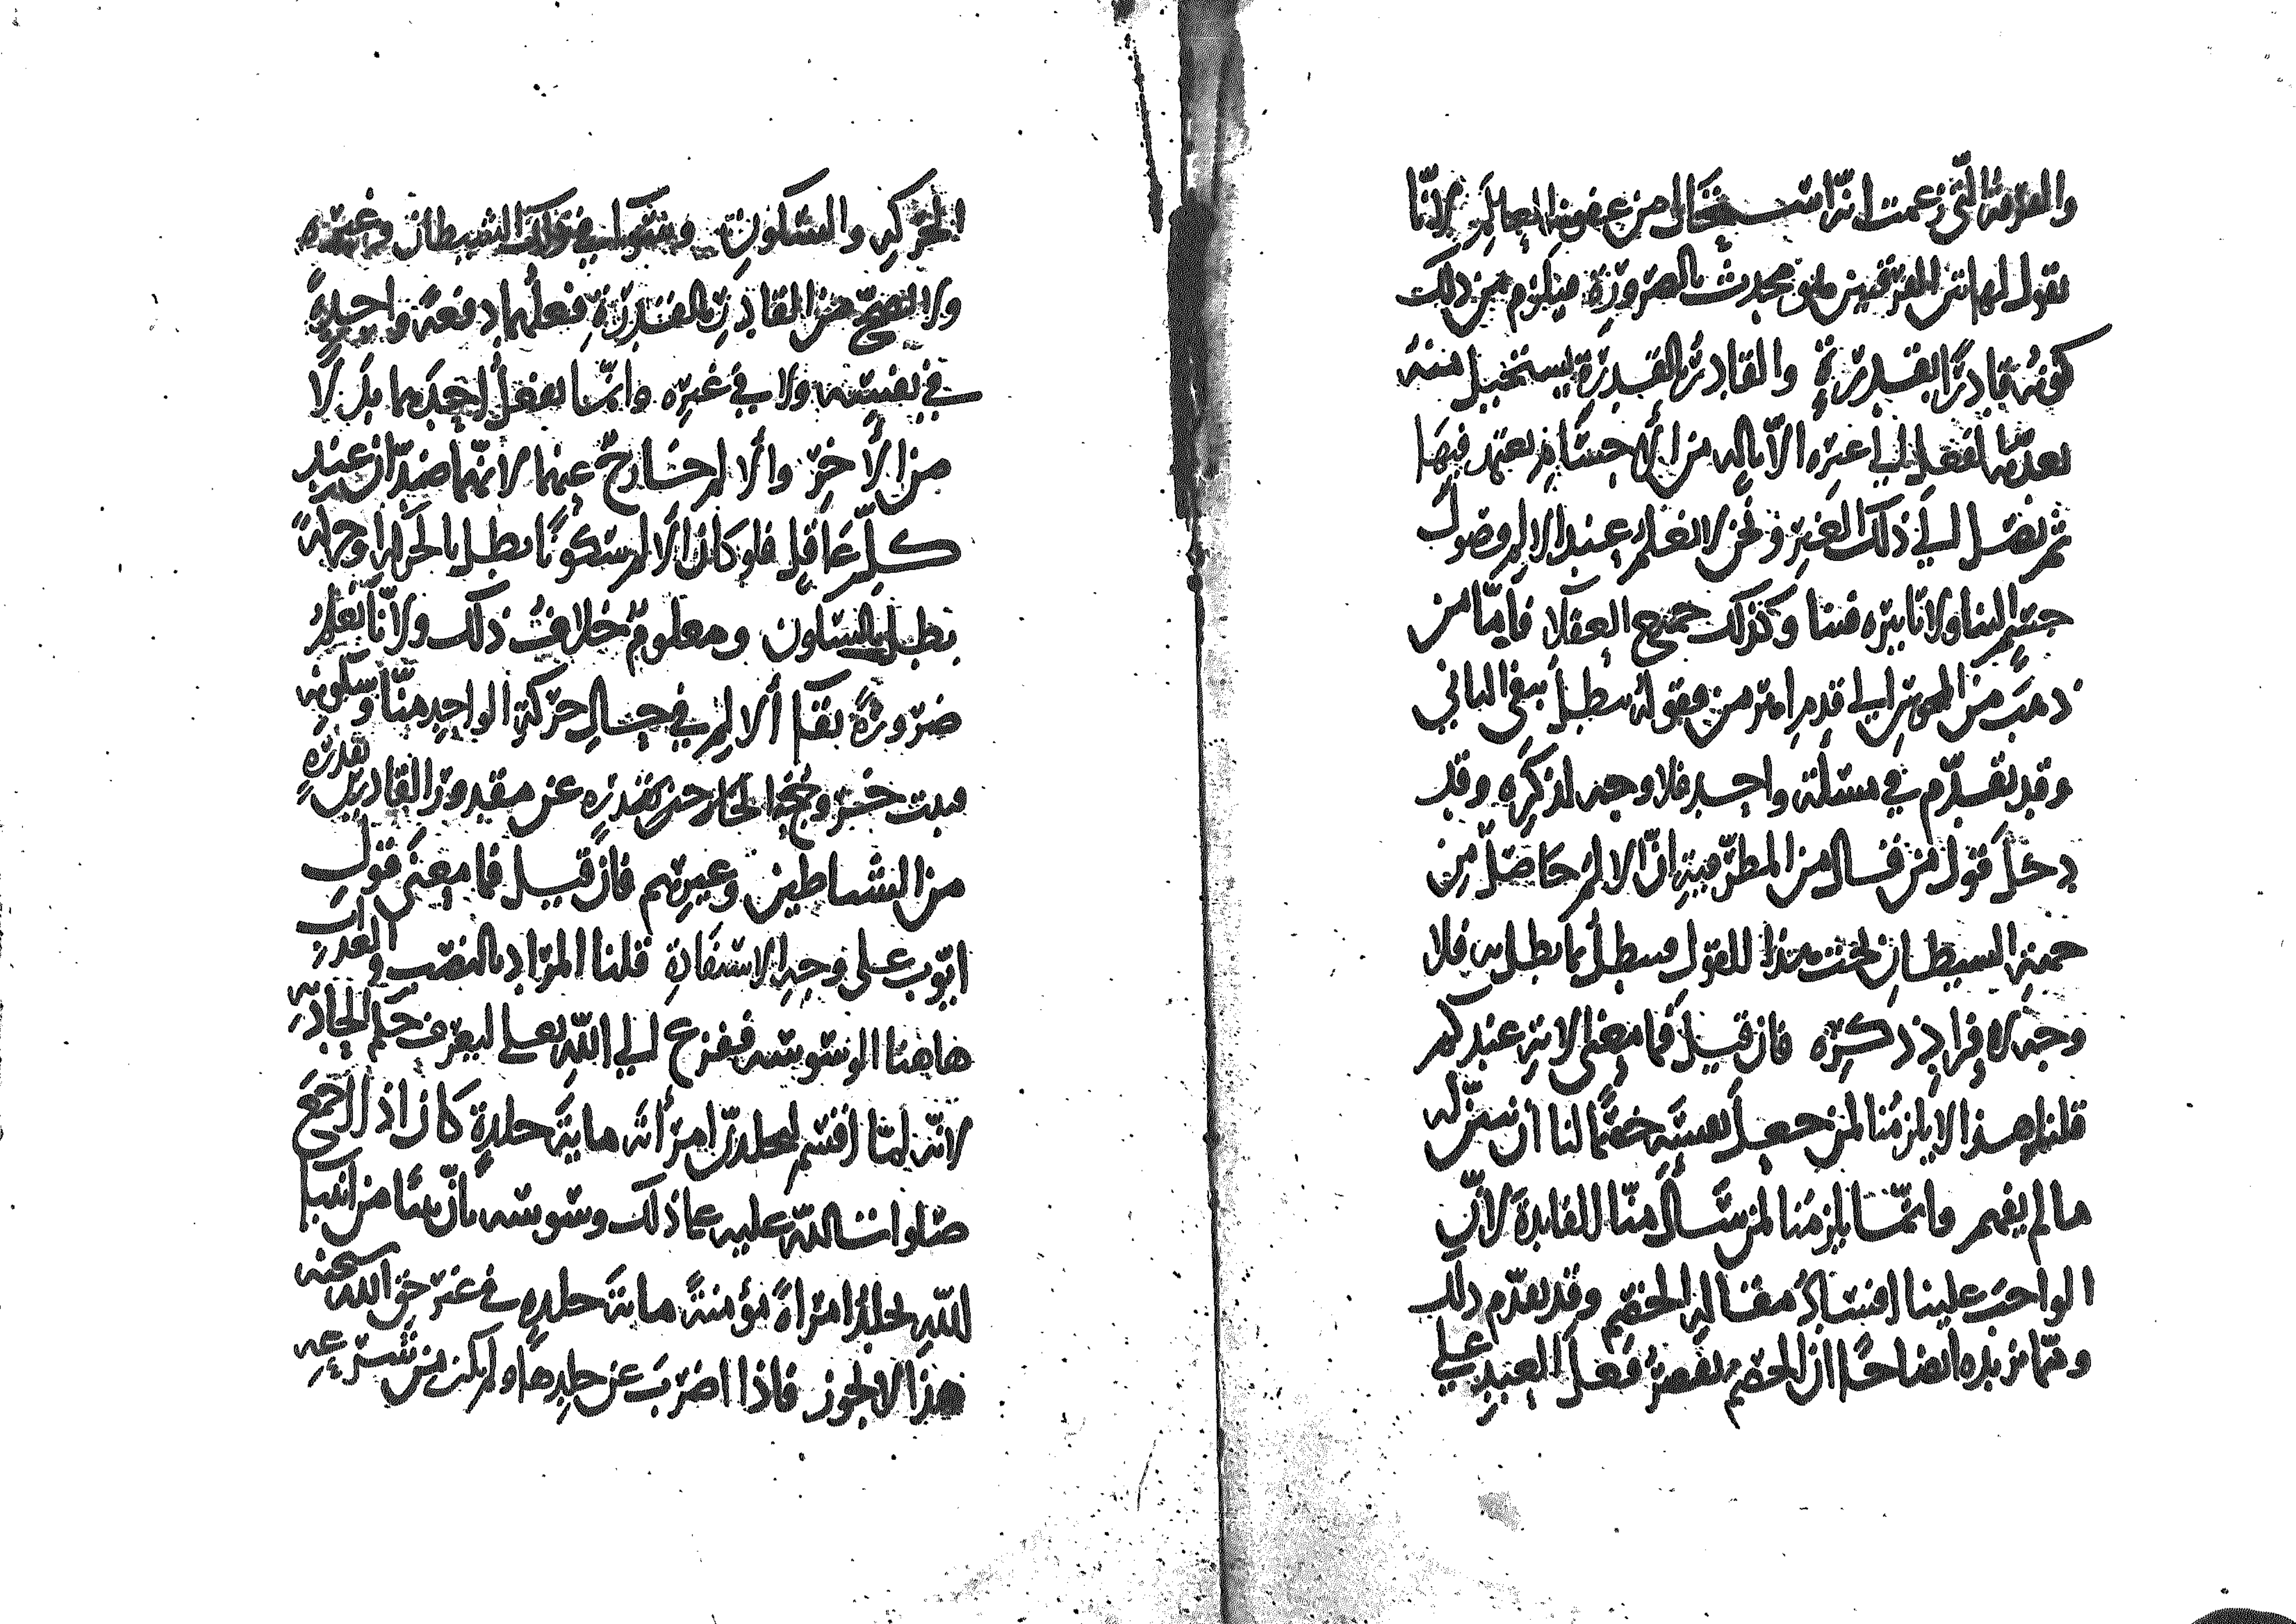 والفرقة التي زعمت انه استحال من عفونة العالم لانا
نقول لهاتين الفرقتين هو محدث بالضرورة فيلزم من ذلك
كونه قادرًا بقدرة والقادر بالقدرة يستحيل منه
تعدية الفعل الى غيره الا بالة من الة جسمانية يعتمد فيها
ثم تصل الى ذلك الغير ونحن لا نعلم عند الالم وصول
جسم الينا ولا تاثيره فينا وكذلك جميع العقلا فاما من
ذهب من المجوس الى قدم اهرمن فقوله يبطل بنفي الثاني
وقد تقدم في مسئلة واحد فلا وجه لذكره وقد
دخل قول من قال من المطرفية ان الالم حاصل من
جهة الشيطان تحت هذا القول فيبطل بما بطل به فلا
وجه لافراد ذكره فان قيل فما معنى الاية عندكم
قلنا هذا لا يلزمنا لمن جعل نفسه خصما لنا ان نبين له
ما لم يفهم وانما يلزمنا لمن سال منا الفايدة لان
الواجب علينا افساد مقالة الخصم وقد تقدم ذلك
ومما نزيده ايضاحًا ان الخصم يقصر فعل العبد على
الحركة والسكون وسواء في ذلك الشيطان وغيره
ولا تصح من القادر بالقدرة فعلهما دفعة واحدة
في نفسه ولا في غيره وانما يفعل احدهما بدلًا
من الاخر والالم خارج عنهما لانهما ضدان عند
كل عاقل فلو كان الالم سكونًا بطل بالحركة او حركة
بطل بالسكون ومعلوم خلاف ذلك ولانا نعلم
ضرورة بقا الالم في حال حركة الواحد منا وسكونه
فثبت خروجه عن مقدور القادرين بقدرة
من الشياطين وغيرهم فان قيل فما معنى قول
ايوب على وجه الاستغاثة قلنا المراد بالنصب والعذاب
هاهنا الوسوسة ففزع الى الله تعالى ليعرف حكم الحادثة
لانه لما اقسم ليجلدن امرأته ماية جلدة كان اذا اجمع
صلوات الله عليه على ذلك وسوسه بان نبيًا من انبيا
الله يجلد امراة مؤمنة ماية جلدة في غير حق الله سبحنه
هذا لا يجوز فاذا اضرب عن جلدها ولم يكن من شرعه